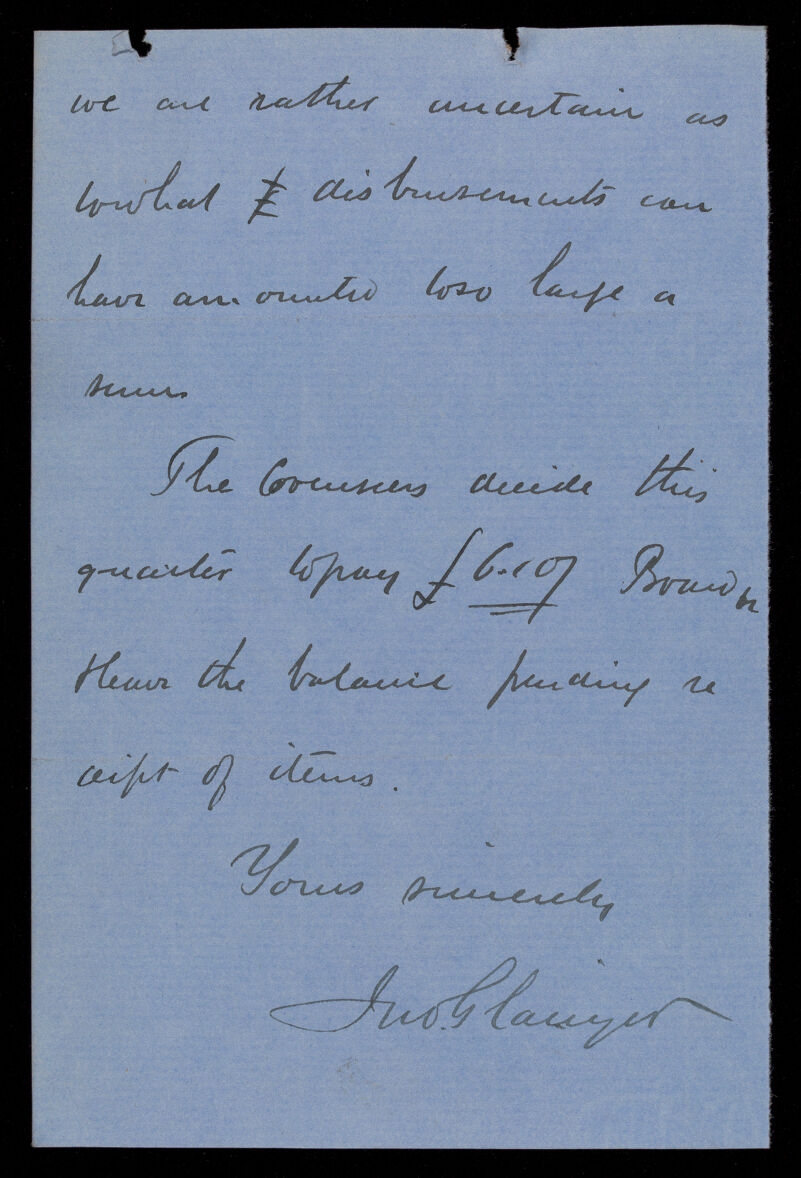 we are rather uncertain as
to what £ disbursements can
have amounted to so large a
sum
The Overseers decide this
quarter to pay £6.10/ Board
& leave the balance pending re
ceipt of items.
Yours sincerely
Jno. G